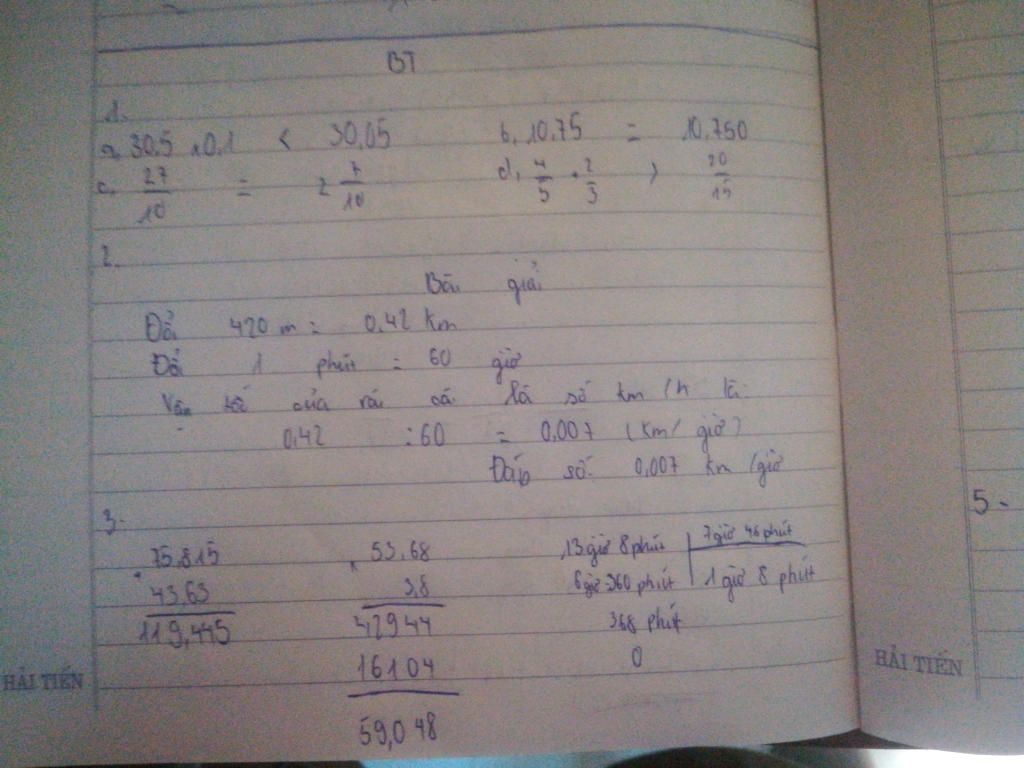 BT
1.
a, 30,5 x 0,1 < 30,05 b, 10,75 = 10,750
c, 27/10 = 2 7/10 d, 4/5 + 2/3 > 20/15
2.
Bài giải
Đổi 420 m = 0,42 km
Đổi 1 phút = 60 giờ
Vận tốc của cá là số km/h là:
0,42 : 60 = 0,007 (km/giờ)
Đáp số: 0,007 km/giờ
3.
75,815 53,68 13 giờ 8 phút 7 giờ 46 phút
+ 43,63 x 3,8 6 giờ = 360 phút 1 giờ 8 phút
119,445 42944 368 phút
16104 0
59,048
5 -
HẢI TIẾN HẢI TIẾN